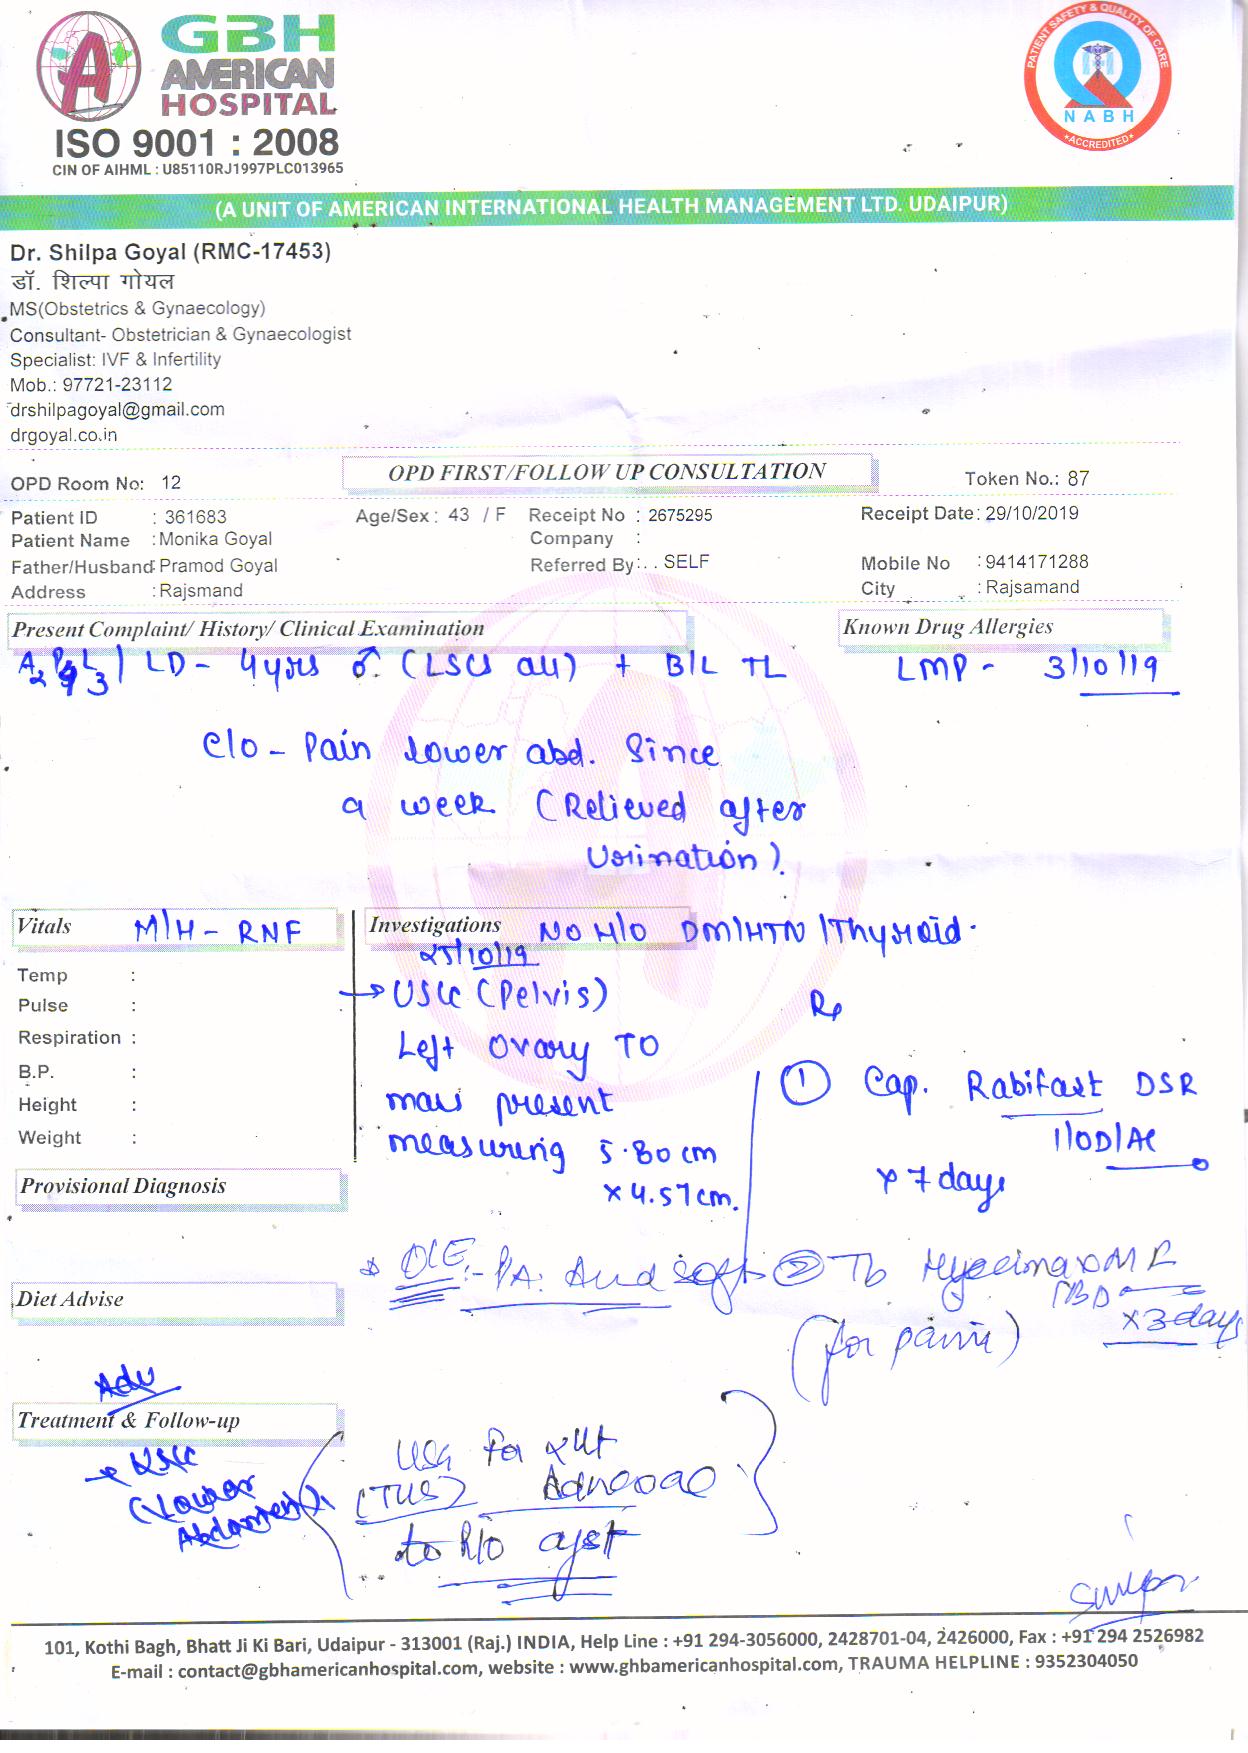 GBH
AMERICAN
HOSPITAL
ISO 9001 : 2008
CIN OF AIHML : U85110RJ1997PLC013965
PATIENT SAFETY & QUALITY OF CARE
NABH
ACCREDITED
(A UNIT OF AMERICAN INTERNATIONAL HEALTH MANAGEMENT LTD. UDAIPUR)
Dr. Shilpa Goyal (RMC-17453)
डॉ. शिल्पा गोयल
MS(Obstetrics & Gynaecology)
Consultant- Obstetrician & Gynaecologist
Specialist: IVF & Infertility
Mob.: 97721-23112
drshilpagoyal@gmail.com
drgoyal.co.in
OPD Room No: 12 OPD FIRST/FOLLOW UP CONSULTATION Token No.: 87
Patient ID : 361683 Age/Sex : 43 / F Receipt No : 2675295 Receipt Date : 29/10/2019
Patient Name : Monika Goyal Company :
Father/Husband: Pramod Goyal Referred By : . . SELF Mobile No : 9414171288
Address : Rajsmand City : Rajsamand
Present Complaint/ History/ Clinical Examination Known Drug Allergies
LD - 4 yrs ♂ (LSCS all) + B/L TL LMP - 3/10/19
C/O - Pain lower abd. Since
a week (Relieved after
Urination).
Vitals M/H - RNF Investigations NO H/O DM/HTN/Thyroid.
25/10/19
Temp :
→ USG (Pelvis) Rx
Pulse :
Respiration :
Left Ovary TO
B.P. :
mass present ① Cap. Rabifast DSR
Height :
1/OD/AC
Weight :
measuring 5.80 cm
x 4.57 cm. x 7 days
Provisional Diagnosis
O/E:- P/A: Abd soft ② Tb MR
1BD
x 3 days
Diet Advise
(for pain)
Adv
Treatment & Follow-up
→ USG
(Lower
Abdomen)
USG for
(TVS) Adnexae
to R/O cyst
101, Kothi Bagh, Bhatt Ji Ki Bari, Udaipur - 313001 (Raj.) INDIA, Help Line : +91 294-3056000, 2428701-04, 2426000, Fax : +91 294 2526982
E-mail : contact@gbhamericanhospital.com, website : www.ghbamericanhospital.com, TRAUMA HELPLINE : 9352304050